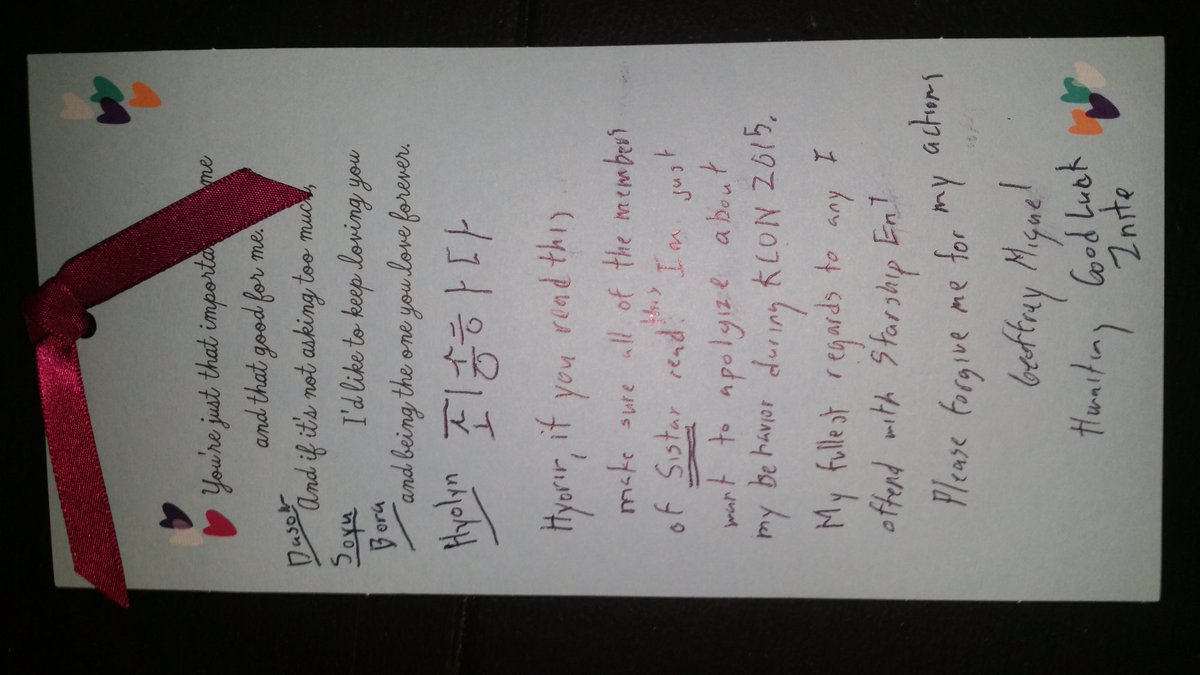 You're just that importa me
and that good for me.
Dasom
And if it's not asking too much,
Soyu
I'd like to keep loving you
Bora
and being the one you love forever.
Hyolyn
Hyorin, if you read this,
make sure all of the members
of Sistar read this I'm just
want to apolgize about
my behavior during KCON 2015.
My fullest regards to any I
offend with Starship Ent
Please forgive me for my actions
Geoffray Miguel
Hwaiting Good Luck
2nite